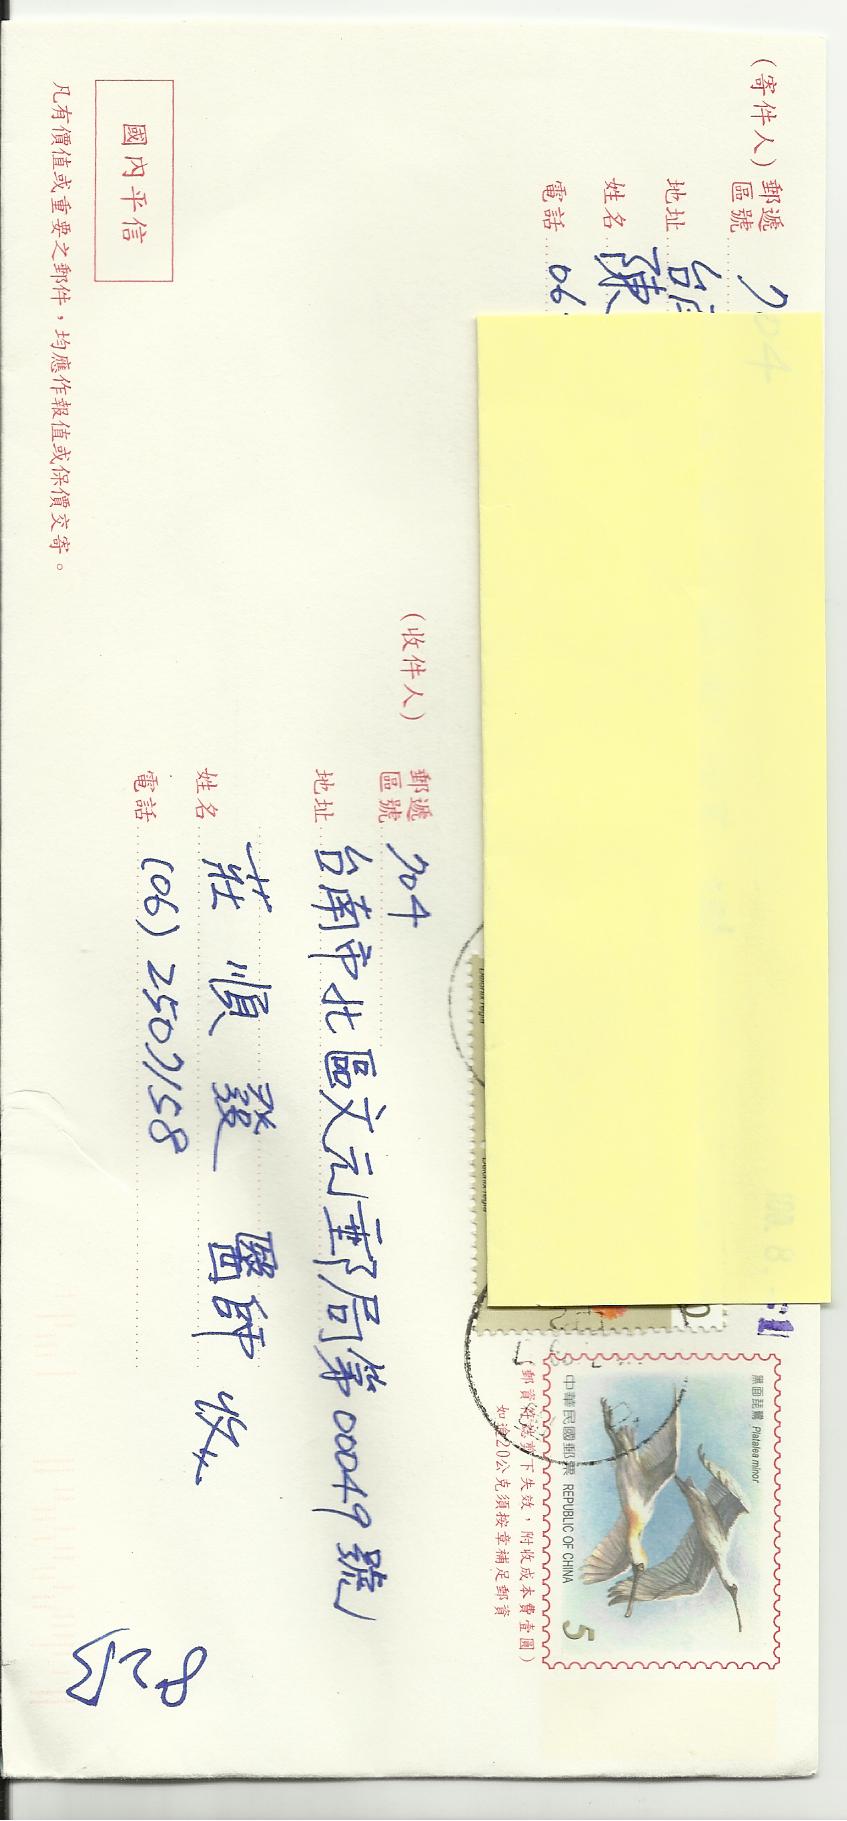 (寄件人)
郵遞區號 704
地址 台南
姓名 陳
電話 06
黑面琵鷺 Platalea minor
中華民國郵票 REPUBLIC OF CHINA
5
(郵資符誌剪下失效,附收成本費壹圓)
如逾20公克須按章補足郵資
(收件人)
郵遞區號 704
地址 台南市北區文元郵局第00049號
姓名 莊順發 醫師 收
電話 (06) 2507158
國內平信
凡有價值或重要之郵件,均應作報值或保價交寄。
Delonix regia
Delonix regia